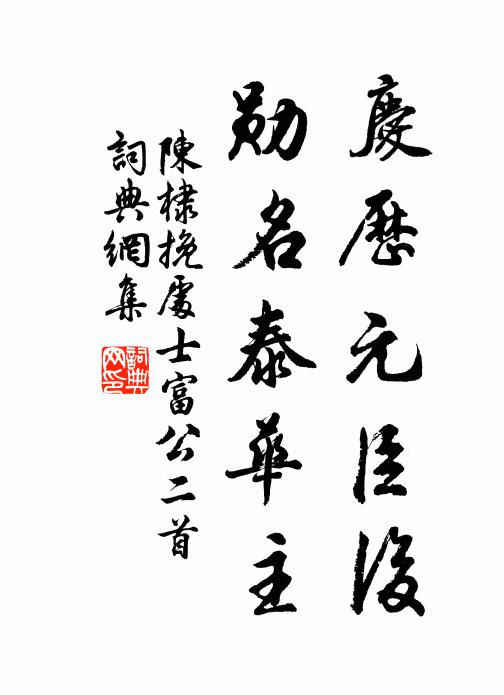 慶歷元臣後
勛名泰華主
陳棣挽處士富公二首
詞典網集
詞典网印